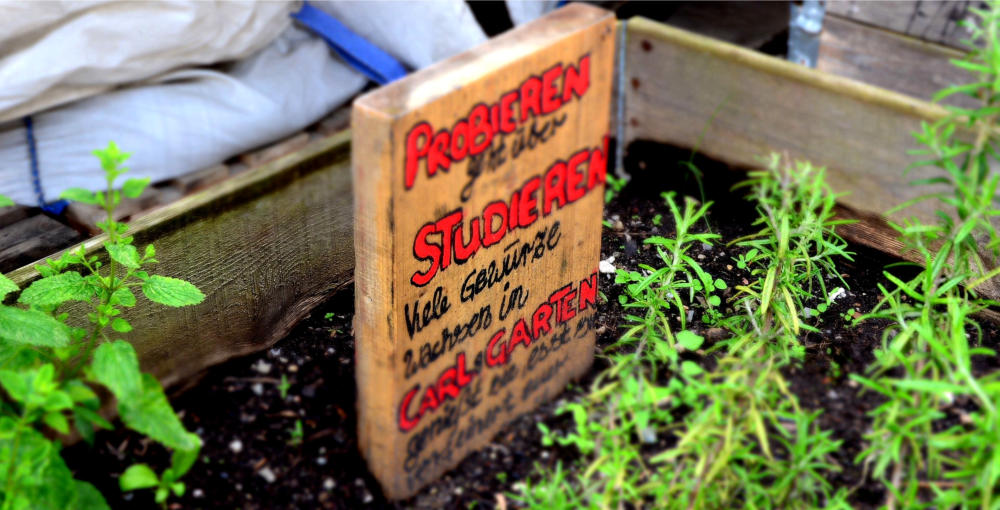 PROBIEREN
geht über
STUDIEREN
Viele Gewürze
wachsen in
CARLsGARTEN
genießt sie